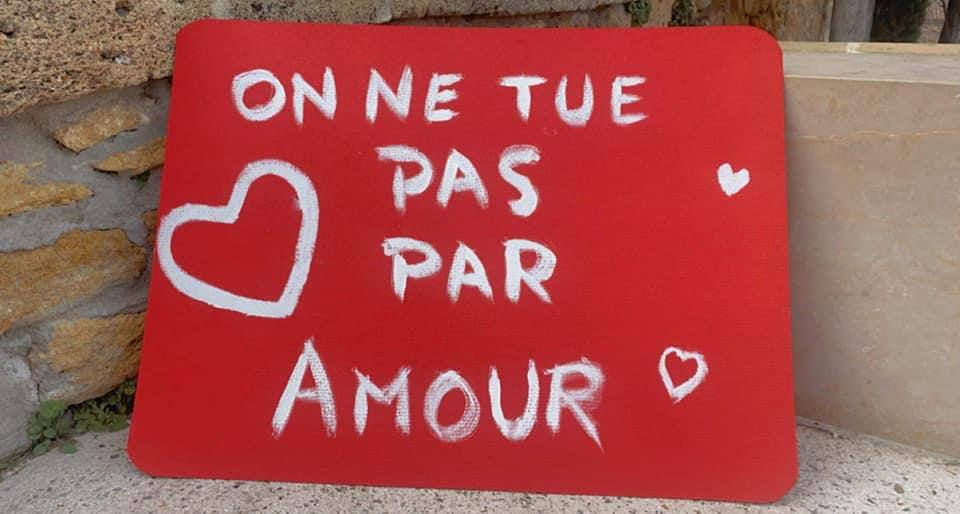 ON NE TUE
PAS
PAR
AMOUR